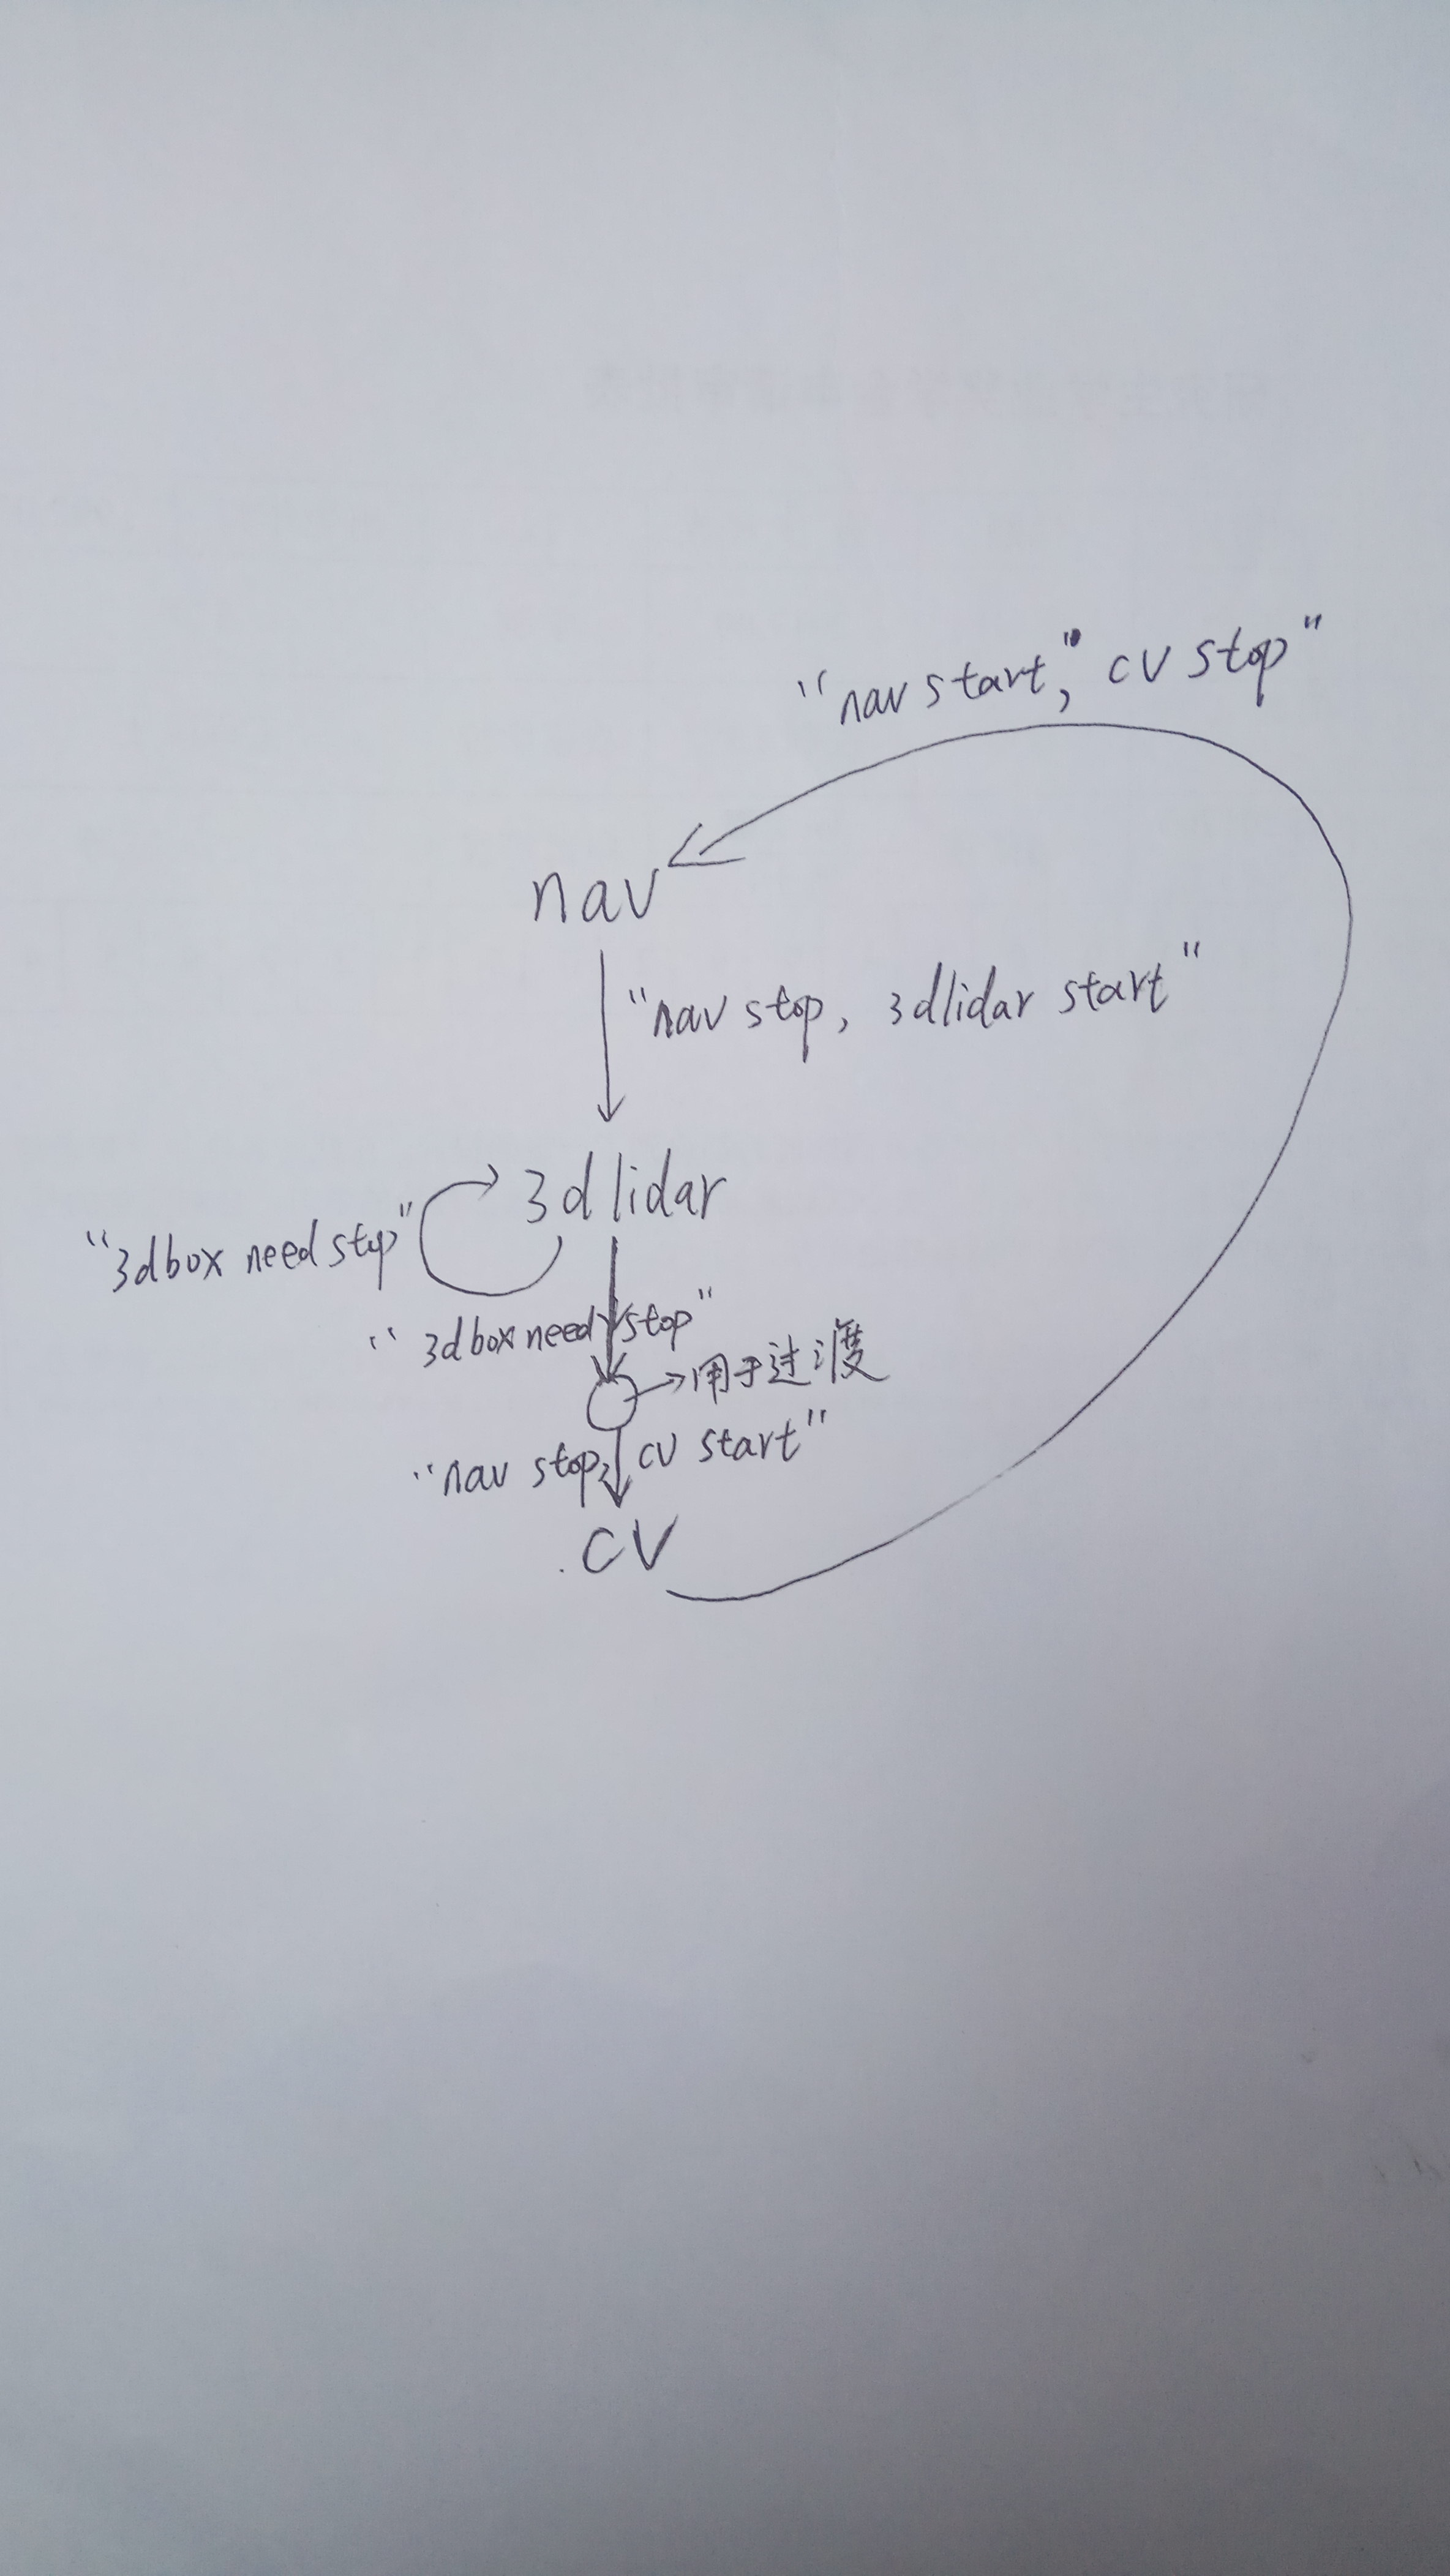 "nav start," cv stop"
nav
"nav stop, 3dlidar start"
3dlidar
"3dbox need stop"
"3dbox need stop"
用于过渡
"nav stop, cv start"
cv